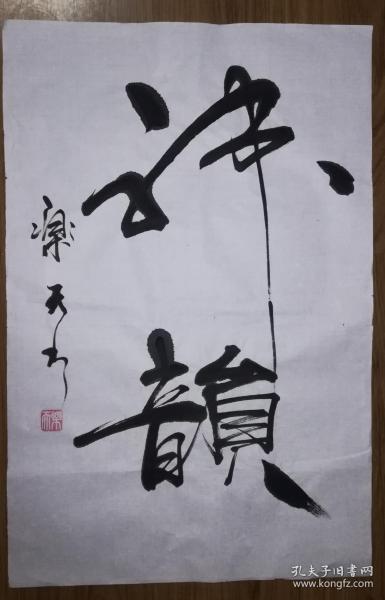 诗韻
樂天书
孔夫子旧书网
www.kongfz.com